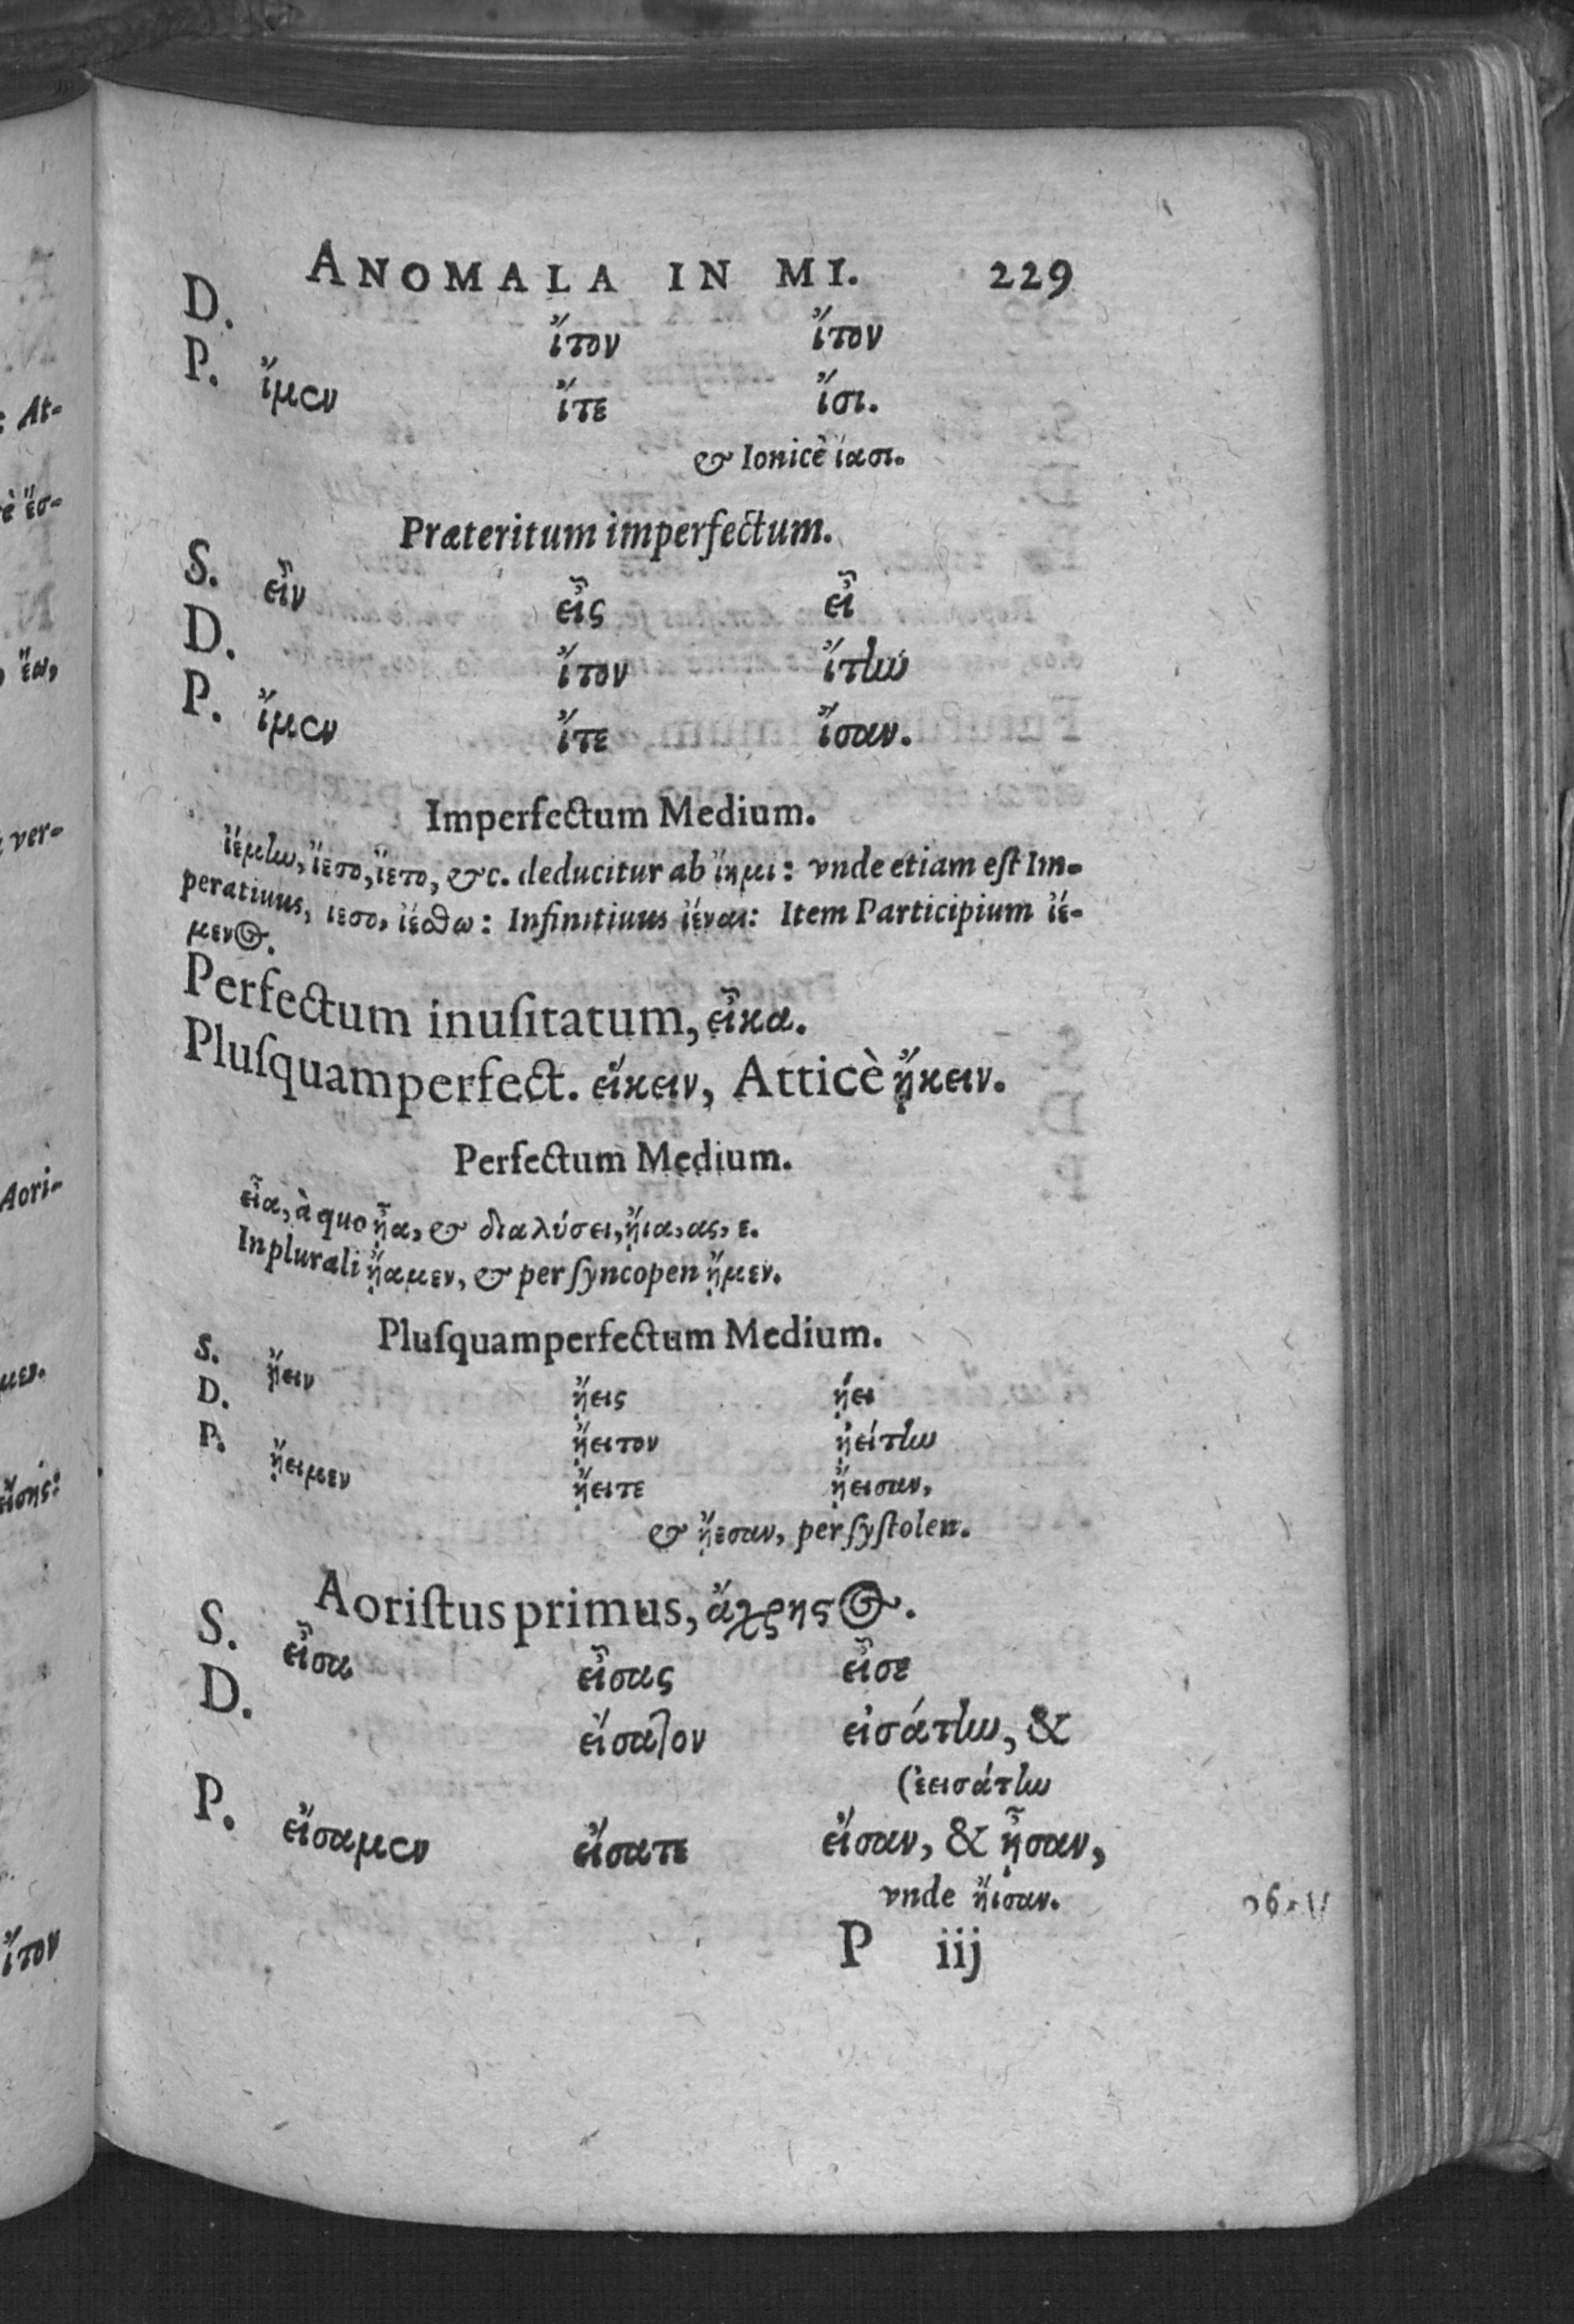 ANOMALA IN MI. 229
D. ἴτον ἴτον
P. ἴμεν ἴτε ἴσι.
& Ionicè ἴασι.
Præteritum imperfectum.
S. εἶν εἶς εἶ
D. ἴτον ἴτην
P. ἴμεν ἴτε ἴσαν.
Imperfectum Medium.
ἰέμην, ἵεσο, ἵετο, &c. deducitur ab ἵημι: vnde etiam est Im-
peratiuus, ἵεσο, ἰέσθω: Infinitiuus ἰέναι: Item Participium ἰέ-
μενος.
Perfectum inuſitatum, εἶκα.
Pluſquamperfect. εἴκειν, Atticè ᾔκειν.
Perfectum Medium.
εἶα, à quo ᾖα, & διαλύσει, ἤια, ας, ε.
In plurali ᾔαμεν, & per ſyncopen ᾔμεν.
Pluſquamperfectum Medium.
S. ᾔειν ᾔεις ᾔει
D. ᾔειτον ᾐείτην
P. ᾔειμεν ᾔειτε ᾔεισαν,
& ᾔεσαν, per ſyſtolen.
Aoriſtus primus, ἄχρηστος.
S. εἶσα εἶσας εἶσε
D. εἴσατον εἰσάτην, &
(ἐεισάτην
P. εἴσαμεν εἴσατε εἴσαν, & ᾖσαν,
vnde ἤισαν.
P iij